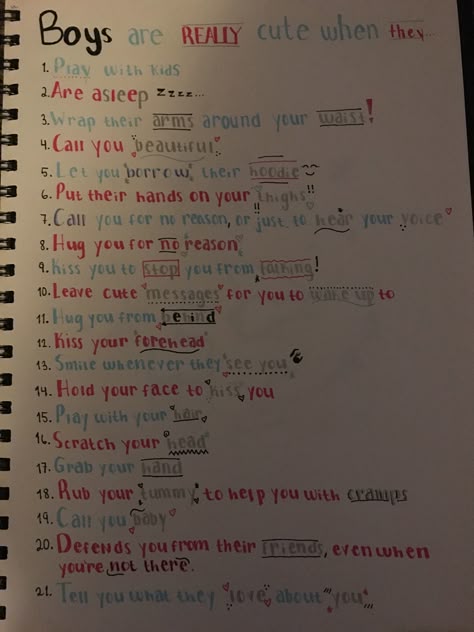 Boys are REALLY cute when they...
1. Play with kids
2. Are asleep zzzz...
3. Wrap their arms around your waist!
4. Call you beautiful
5. Let you borrow their hoodie
6. Put their hands on your thighs!!
7. Call you for no reason, or just to hear your voice
8. Hug you for no reason
9. Kiss you to stop you from talking!
10. Leave cute messages for you to wake up to
11. Hug you from behind
12. Kiss your forehead
13. Smile whenever they see you
14. Hold your face to kiss you
15. Play with your hair
16. Scratch your head
17. Grab your hand
18. Rub your tummy to help you with cramps
19. Call you baby
20. Defends you from their friends, even when
you're not there.
21. Tell you what they "love" about "you"